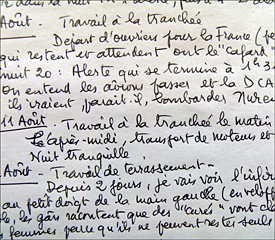 Août - Travail à la tranchée
Départ d'ouvriers pour la France (
qui restent et attendent ont le "cafard
nuit 20 : Alerte qui se termine à 1h3
On entend les avions passer et la DCA
ils iraient, paraît-il, bombarder Nurem
11 Août - Travail à la tranchée le matin
Le après-midi, transport de moteurs et
Nuit tranquille.
Août - Travail de terrassement -
Depuis 2 jours, je vais voir l'infir
au petit doigt de la main gauche (envelopp
le, les gars racontent que des "curés" vont
femmes parce qu'ils ne peuvent rester seuls